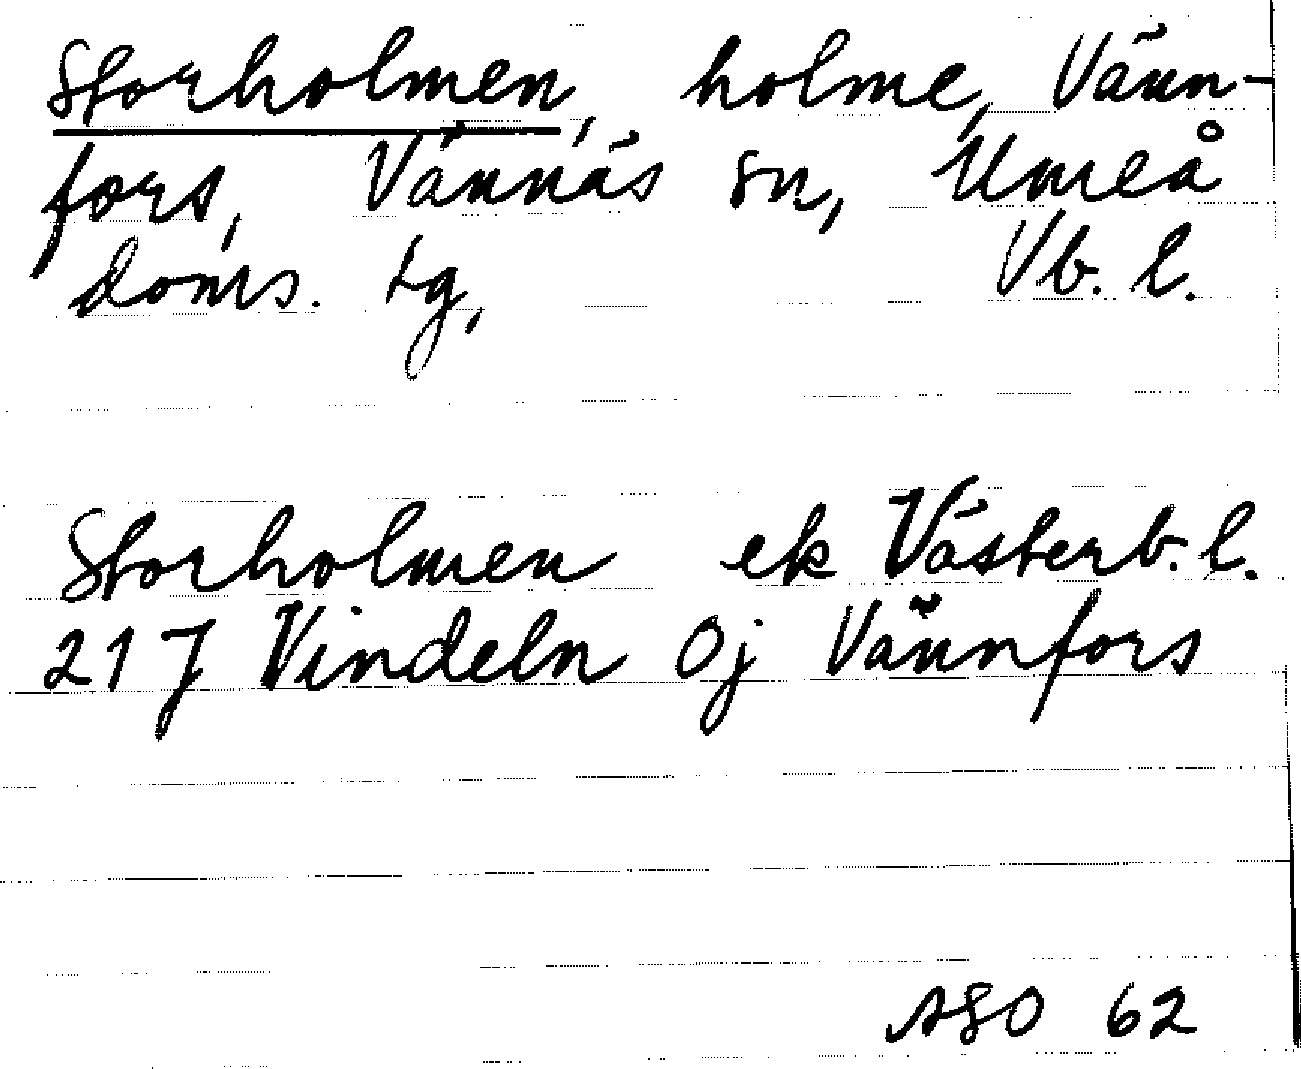 Storholmen, holme, Vänn-
fors, Vännäs sn, Umeå
doms. tg, Vb. l.
Storholmen ek Västerb. l.
21 J Vindeln 0j Vännfors
ASO 62